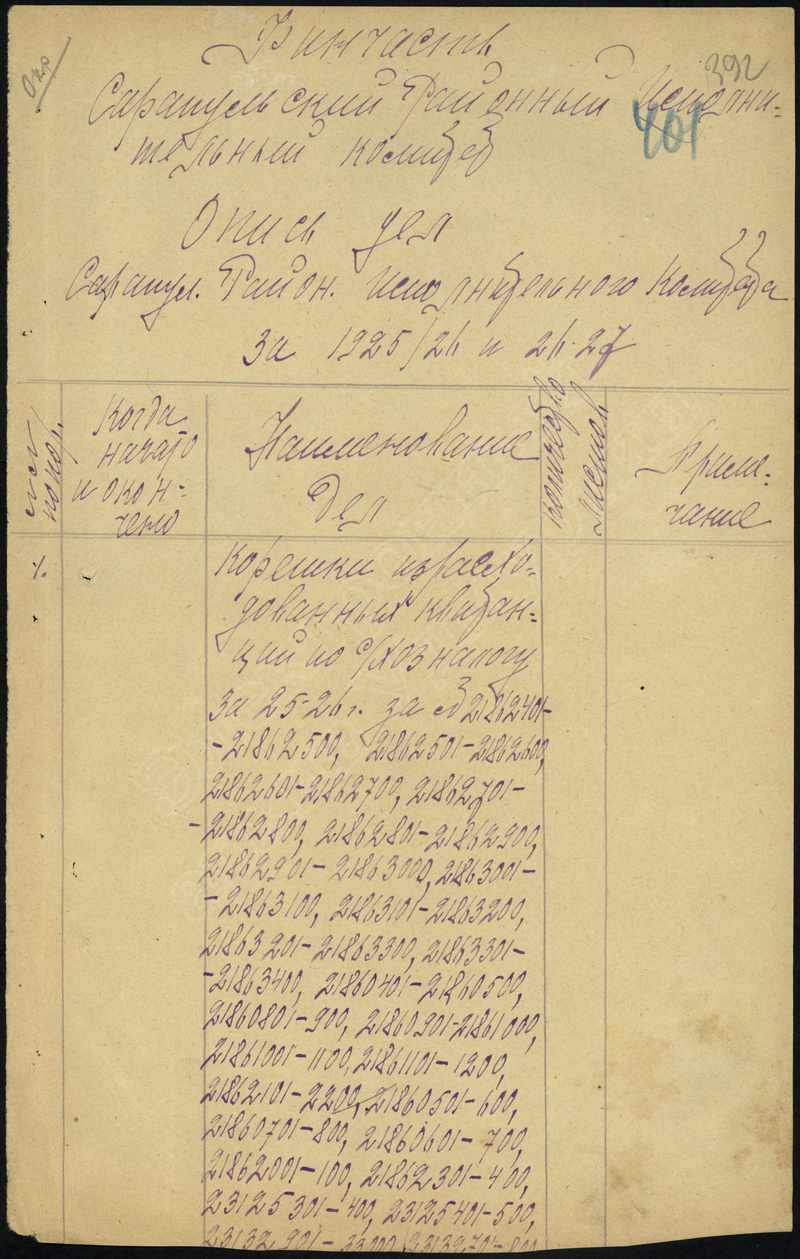 Окр
392
401
Финчасть
Сарапульский Районный Исполни-
тельный комитет
Опись дел
Сарапул. Район. Исполнительного Комитета
за 1925/26 и 26-27
№№ по пор.
Когда
начато
и окон-
чено
Наименование
дел
количество
листов
Приме-
чание
1.
Корешки израсхо-
дованных квитан-
ций по с/хозналогу
за 25-26 г. за № 21862401-
-21862500, 21862501-21862600,
21862601-21862700, 21862701-
-21862800, 21862801-21862900,
21862901-21863000, 21863001-
-21863100, 21863101-21863200,
21863201-21863300, 21863301-
-21863400, 21860401-21860500,
21860801-900, 21860901-21861000,
21861001-1100, 21861101-1200,
21862101-2200, 21860501-600,
21860701-800, 21860601-700,
21862001-100, 21862301-400,
23125301-400, 23125401-500,
23132901-33000, 23132701-800